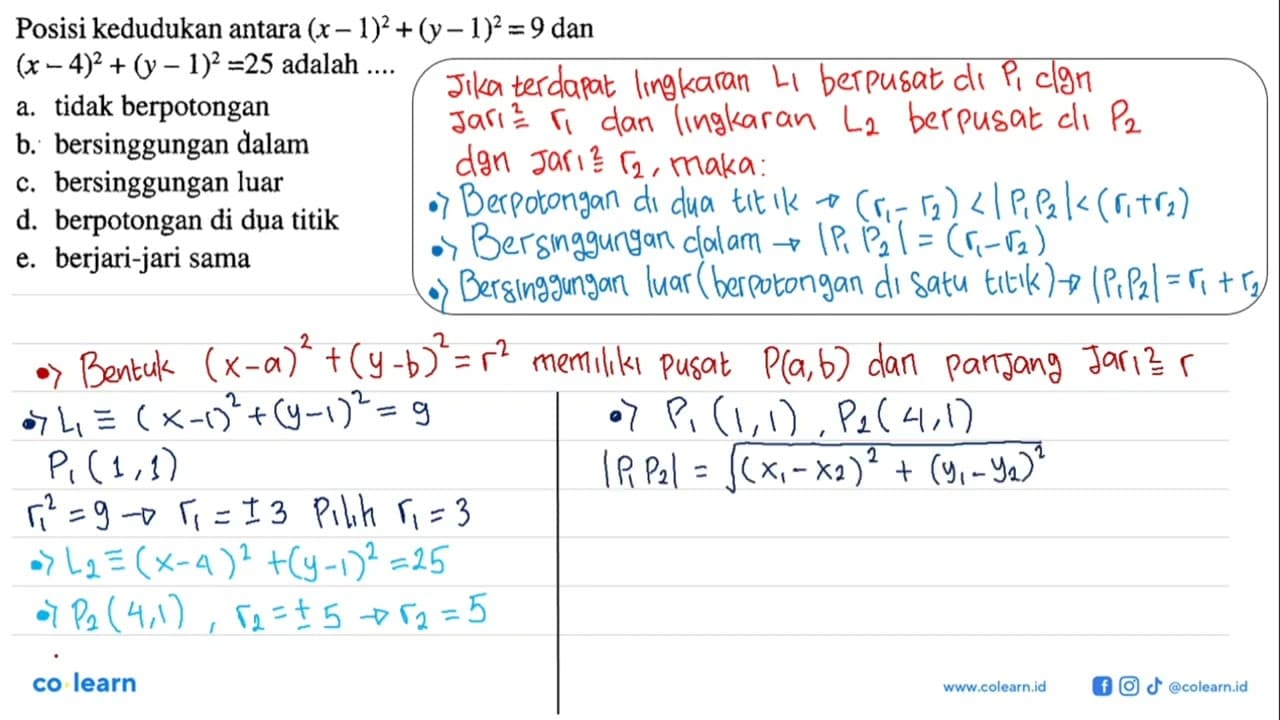 Posisi kedudukan antara (x – 1)² + (y – 1)² = 9 dan
(x – 4)² + (y – 1)² =25 adalah ....
a. tidak berpotongan
b. bersinggungan dalam
c. bersinggungan luar
d. berpotongan di dua titik
e. berjari-jari sama
Jika terdapat lingkaran L₁ berpusat di P₁ dgn
Jari² r₁ dan lingkaran L₂ berpusat di P₂
dgn Jari² r₂, maka:
•> Berpotongan di dua titik → (r₁ - r₂) < |P₁P₂| < (r₁+r₂)
•> Bersinggungan dalam → |P₁ P₂| = (r₁-r₂)
•> Bersinggungan luar (berpotongan di satu titik) → |P₁P₂| = r₁ + r₂
•> Bentuk (x-a)² + (y-b)² = r² memiliki pusat P(a,b) dan panjang Jari² r
•> L₁ ≡ (x-1)² + (y-1)² = 9
P₁ (1,1)
r₁² = 9 → r₁ = ± 3 Pilih r₁ = 3
•> L₂ ≡ (x-4)² + (y-1)² = 25
•> P₂ (4,1) , r₂ = ± 5 → r₂ = 5
•> P₁ (1,1) , P₂ (4,1)
|P₁ P₂| = √((x₁ - x₂)² + (y₁ - y₂)²)
co learn
www.colearn.id
@colearn.id